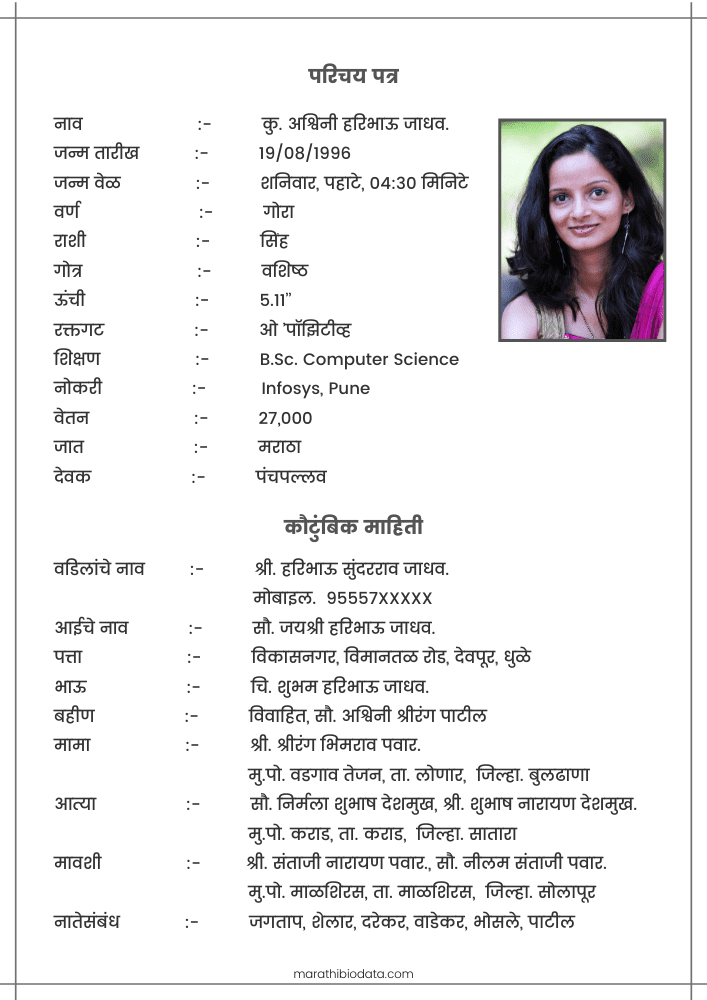 परिचय पत्र
नाव :- कु. अश्विनी हरिभाऊ जाधव.
जन्म तारीख :- 19/08/1996
जन्म वेळ :- शनिवार, पहाटे, 04:30 मिनिटे
वर्ण :- गोरा
राशी :- सिंह
गोत्र :- वशिष्ठ
ऊंची :- 5.11”
रक्तगट :- ओ ’पॉझिटीव्ह
शिक्षण :- B.Sc. Computer Science
नोकरी :- Infosys, Pune
वेतन :- 27,000
जात :- मराठा
देवक :- पंचपल्लव
कौटुंबिक माहिती
वडिलांचे नाव :- श्री. हरिभाऊ सुंदरराव जाधव.
मोबाइल. 95557XXXXX
आईचे नाव :- सौ. जयश्री हरिभाऊ जाधव.
पत्ता :- विकासनगर, विमानतळ रोड, देवपूर, धुळे
भाऊ :- चि. शुभम हरिभाऊ जाधव.
बहीण :- विवाहित, सौ. अश्विनी श्रीरंग पाटील
मामा :- श्री. श्रीरंग भिमराव पवार.
मु.पो. वडगाव तेजन, ता. लोणार, जिल्हा. बुलढाणा
आत्या :- सौ. निर्मला शुभाष देशमुख, श्री. शुभाष नारायण देशमुख.
मु.पो. कराड, ता. कराड, जिल्हा. सातारा
मावशी :- श्री. संताजी नारायण पवार., सौ. नीलम संताजी पवार.
मु.पो. माळशिरस, ता. माळशिरस, जिल्हा. सोलापूर
नातेसंबंध :- जगताप, शेलार, दरेकर, वाडेकर, भोसले, पाटील
marathibiodata.com